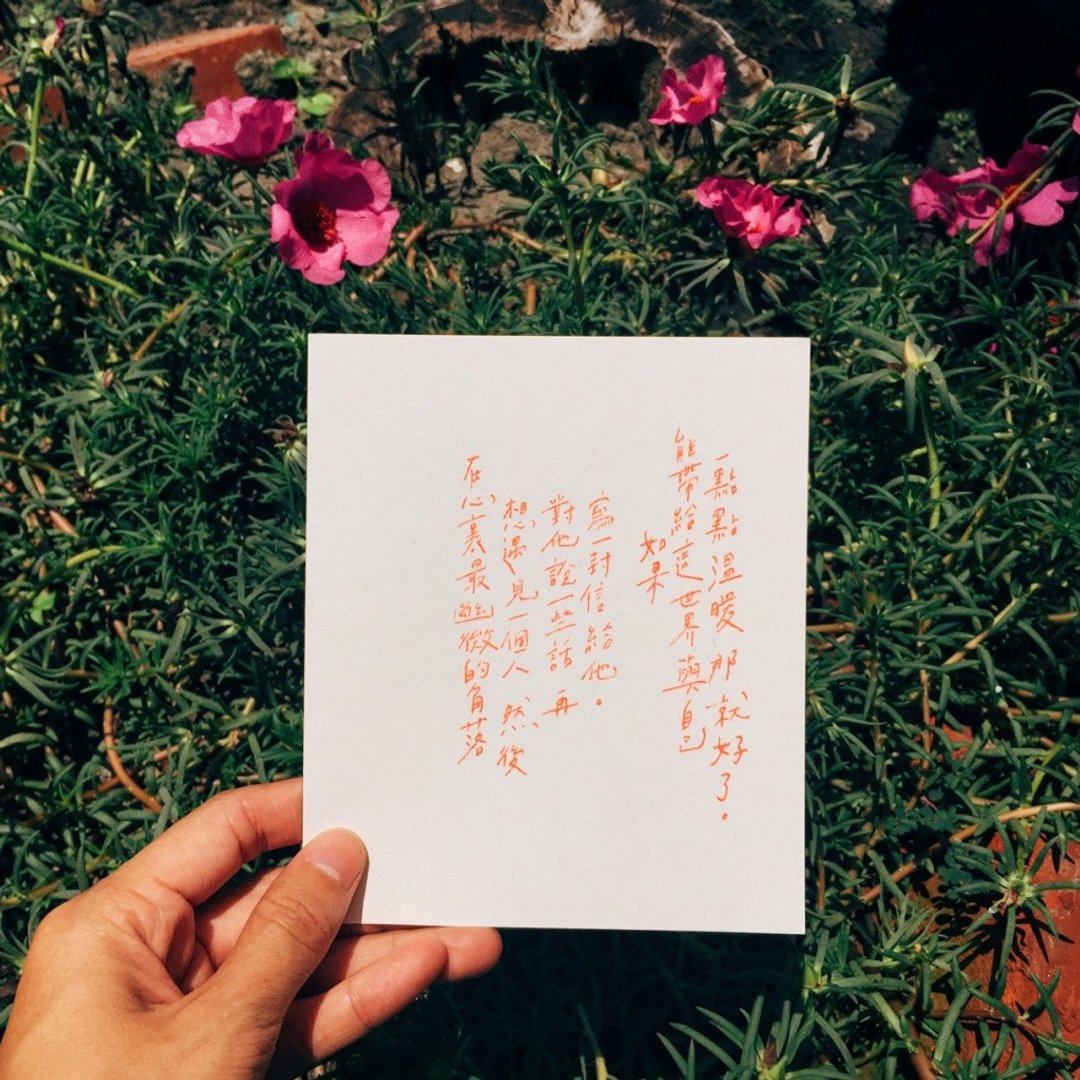 在心裏最幽微的角落
想遇見一個人 然後
對他說一些話 再
寫一封信給他。
如果
能帶給這世界與自己
一點點溫暖 那就好了。